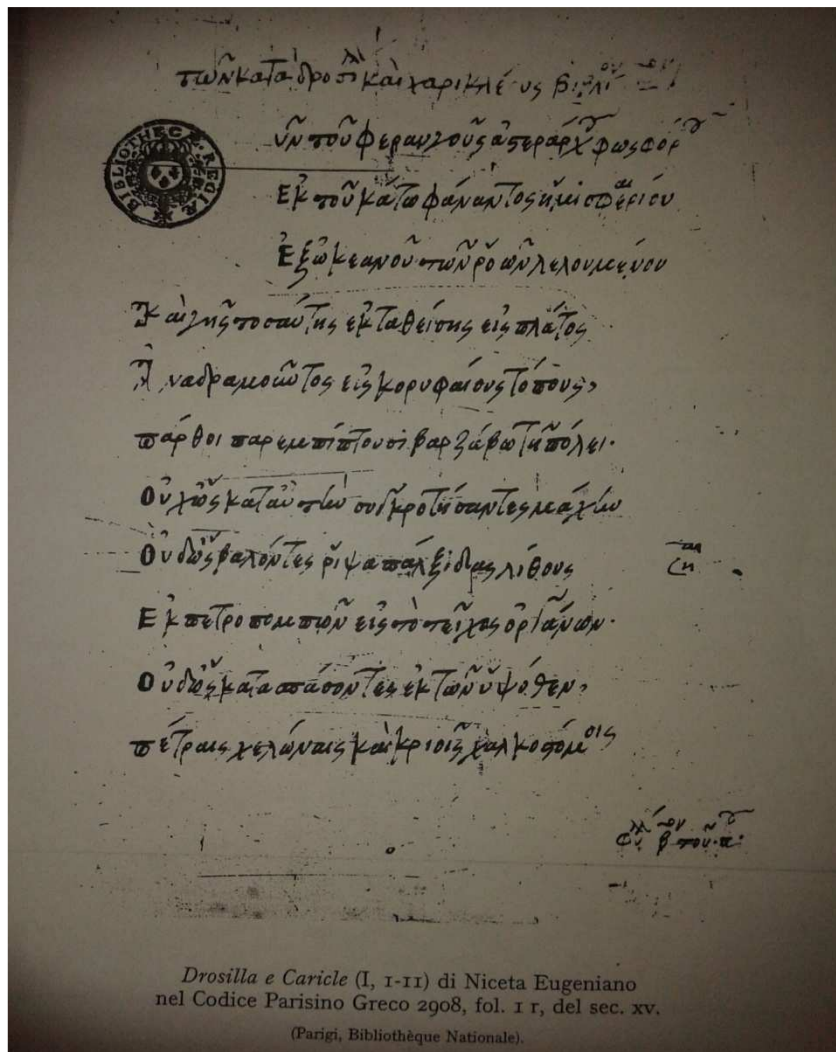 τῶν κατὰ δροσίλλαν καὶ χαρικλέους βιβλίον
ῦν τοῦ φεραυγοῦς ἀστεράρχου φωσφόρου
Ἐκ τοῦ κάτω φανέντος ἡμισφαιρίου
Ἐξ ὠκεανοῦ τῶν ῥοῶν λελουμένου
Καὶ γῆς τοσαύτης ἐκταθείσης εἰς πλάτος
Ἀναδραμόντος εἰς κορυφαίους τόπους,
πάρθοι παρεμπίπτουσι βαρζάβω τῆ πόλει.
Οὐχ ὡς κατ' αὐτὴν συγκροτήσαντες μάχην
Οὐδ' ὡς βαλόντες ῥιψεπάλξιδας λίθους
Ἐκ πετροπομπῶν εἰς τὸ τεῖχος ὀργάνων.
Οὐδ' ὡς κατασπάσοντες ἐκ τῶν ὑψόθεν,
πέτραις χελώναις καὶ κριοῖς χαλκοστόμοις
BIBLIOTHECÆ REGIÆ
Drosilla e Caricle (I, 1-11) di Niceta Eugeniano
nel Codice Parisino Greco 2908, fol. 1 r, del sec. xv.
(Parigi, Bibliothèque Nationale).